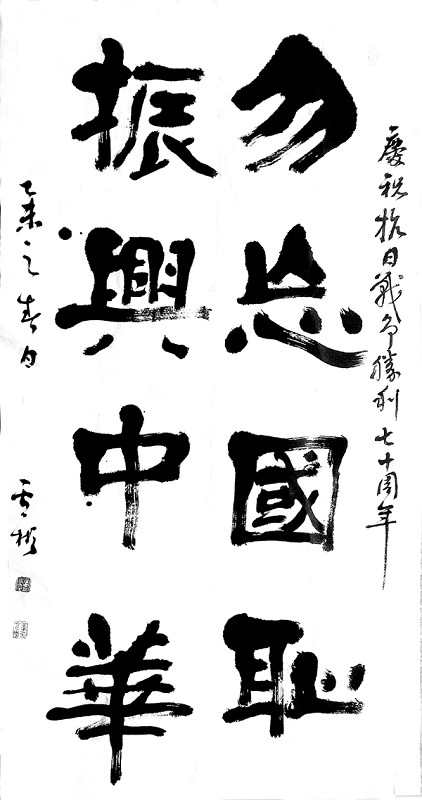 慶祝抗日戰爭勝利七十周年
勿忘國耻
振興中華
乙未之春日